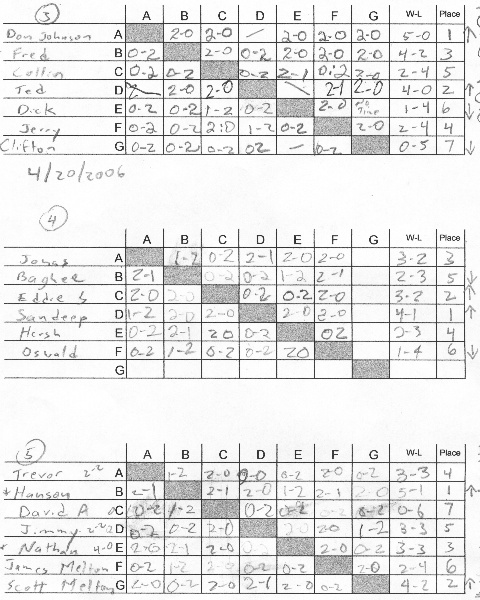 3
A B C D E F G W-L Place
Don Johnson A 2-0 2-0 / 2-0 2-0 2-0 5-0 1 ↑
Fred B 0-2 2-0 0-2 2-0 2-0 2-0 4-2 3
Collin C 0-2 0-2 0-2 2-1 0-2 2-0 2-4 5
Ted D 2-0 2-0 2-1 2-0 4-0 2 ↑
Dick E 0-2 0-2 1-2 0-2 2-0 No Time 1-4 6 ↓
Jerry F 0-2 0-2 2-0 1-2 0-2 2-0 2-4 4
Clifton G 0-2 0-2 0-2 02 - 0-2 0-5 7 ↓
4/20/2006
4
A B C D E F G W-L Place
Jonas A 1-2 0-2 2-1 2-0 2-0 3-2 3
Baghee B 2-1 0-2 0-2 1-2 2-1 2-3 5 ↓
Eddie S C 2-0 2-0 0-2 0-2 2-0 3-2 2 ↑
Sandeep D 1-2 2-0 2-0 2-0 2-0 4-1 1 ↑
Harsh E 0-2 2-1 20 0-2 02 2-3 4
Osvald F 0-2 1-2 0-2 0-2 20 1-4 6 ↓
G
5
A B C D E F G W-L Place
Trevor A 1-2 2-0 0-2 20 0-2 3-3 4
* Hanson B 2-1 2-1 2-0 1-2 2-1 2-0 5-1 1 ↑
David A C 0-2 1-2 0-2 0-2 0-2 0-6 7
Jimmy D 0-2 0-2 2-0 20 1-2 3-3 5
Nathan 4-0 E 2-0 2-1 2-0 2-0 0-2 3-3 3
James Melton F 0-2 1-2 0-2 2-0 2-4 6
Scott Melton G 2-0 0-2 2-0 2-1 2-0 0-2 4-2 2 ↑